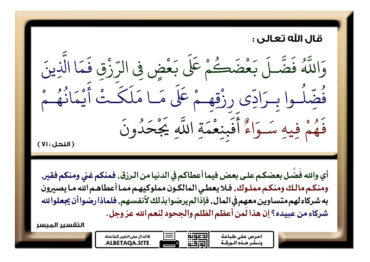 قال الله تعالى :
وَاللَّهُ فَضَّلَ بَعْضَكُمْ عَلَى بَعْضٍ فِي الرِّزْقِ فَمَا الَّذِينَ
فُضِّلُوا بِرَادِّي رِزْقِهِمْ عَلَى مَا مَلَكَتْ أَيْمَانُهُمْ
فَهُمْ فِيهِ سَوَاءٌ أَفَبِنِعْمَةِ اللَّهِ يَجْحَدُونَ
( النحل : ٧١ )
أي والله فضَّل بعضكم على بعض فيما أعطاكم في الدنيا من الرزق, فمنكم غني ومنكم فقير,
ومنكم مالك ومنكم مملوك, فلا يعطي المالكون مملوكيهم مما أعطاهم الله ما يصيرون
به شركاء لهم متساوين معهم في المال, فإذا لم يرضوا بذلك لأنفسهم, فلماذا رضوا أن يجعلوا لله
شركاء من عبيده؟ إن هذا لمن أعظم الظلم والجحود لنعم الله عز وجل.
التفسير الميسر
احرص على طباعة
ونشر هذه الورقة
فالدال على الخير كفاعله
ALBETAQA.SITE